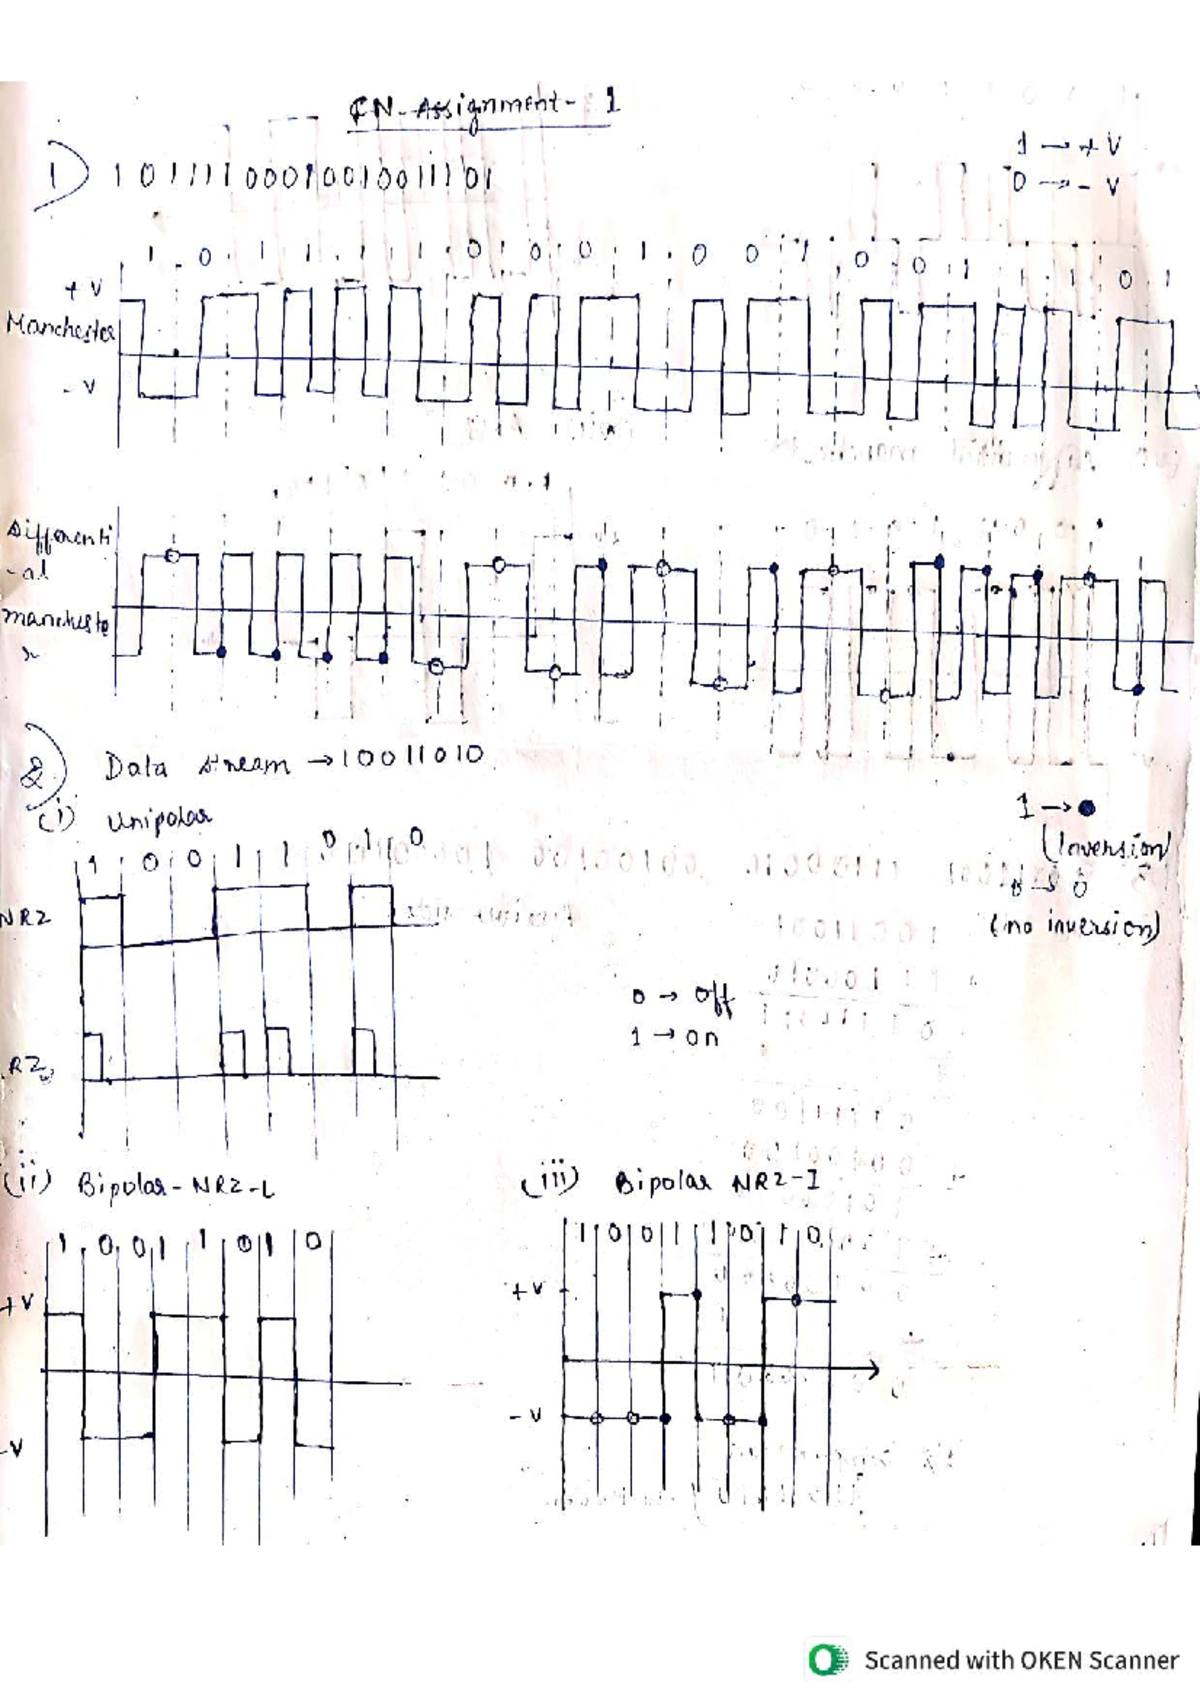 CN-Assignment- 1
1) 101111000100100111101
1 → +V
0 → -V
1 0 1 1 1 1 0 0 0 1 0 0 1 0 0 1 1 1 0 1
+V
Manchester
-V
Differenti
-al
manchste
r
2) Data stream → 10011010
(i) Unipolar
1 → ●
(Inversion)
0 → 0
(no inversion)
1 0 0 1 1 0 1 0
NRZ
RZ
0 → off
1 → on
(ii) Bipolar-NRZ-L
(iii) Bipolar NRZ-I
1 0 0 1 1 0 1 0
+V
-V
1 0 0 1 1 0 1 0
+V
-V
Scanned with OKEN Scanner